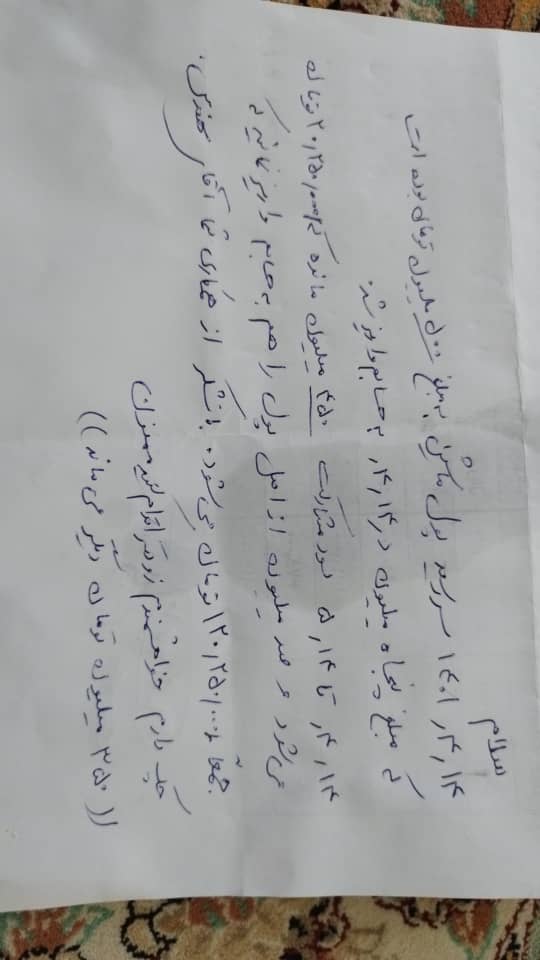 سلام
۱۴۰۱,۴,۱۴ سررسید پول ماشین به مبلغ ۵۰۰ میلیون تومان بوده است
که مبلغ پنجاه میلیون در ۴,۱۴, به حسابم واریز شد.
۴,۱۴, تا ۵,۱۴ سود مشارکت ۴۵۰ میلیون مانده که ۲۰,۲۵۰,۰۰۰ تومان
می‌شود و صد میلیون از اصل پول را هم به حسابم واریز نمائید که
جمعاً ۱۲۰,۲۵۰,۰۰۰ تومان می‌شود. با تشکر از همکاری شما آقای مهندس.
چک دارم خواهشمندم زودتر اقدام کنید ممنون
((۳۵۰ میلیون تومان دیگر می ماند))